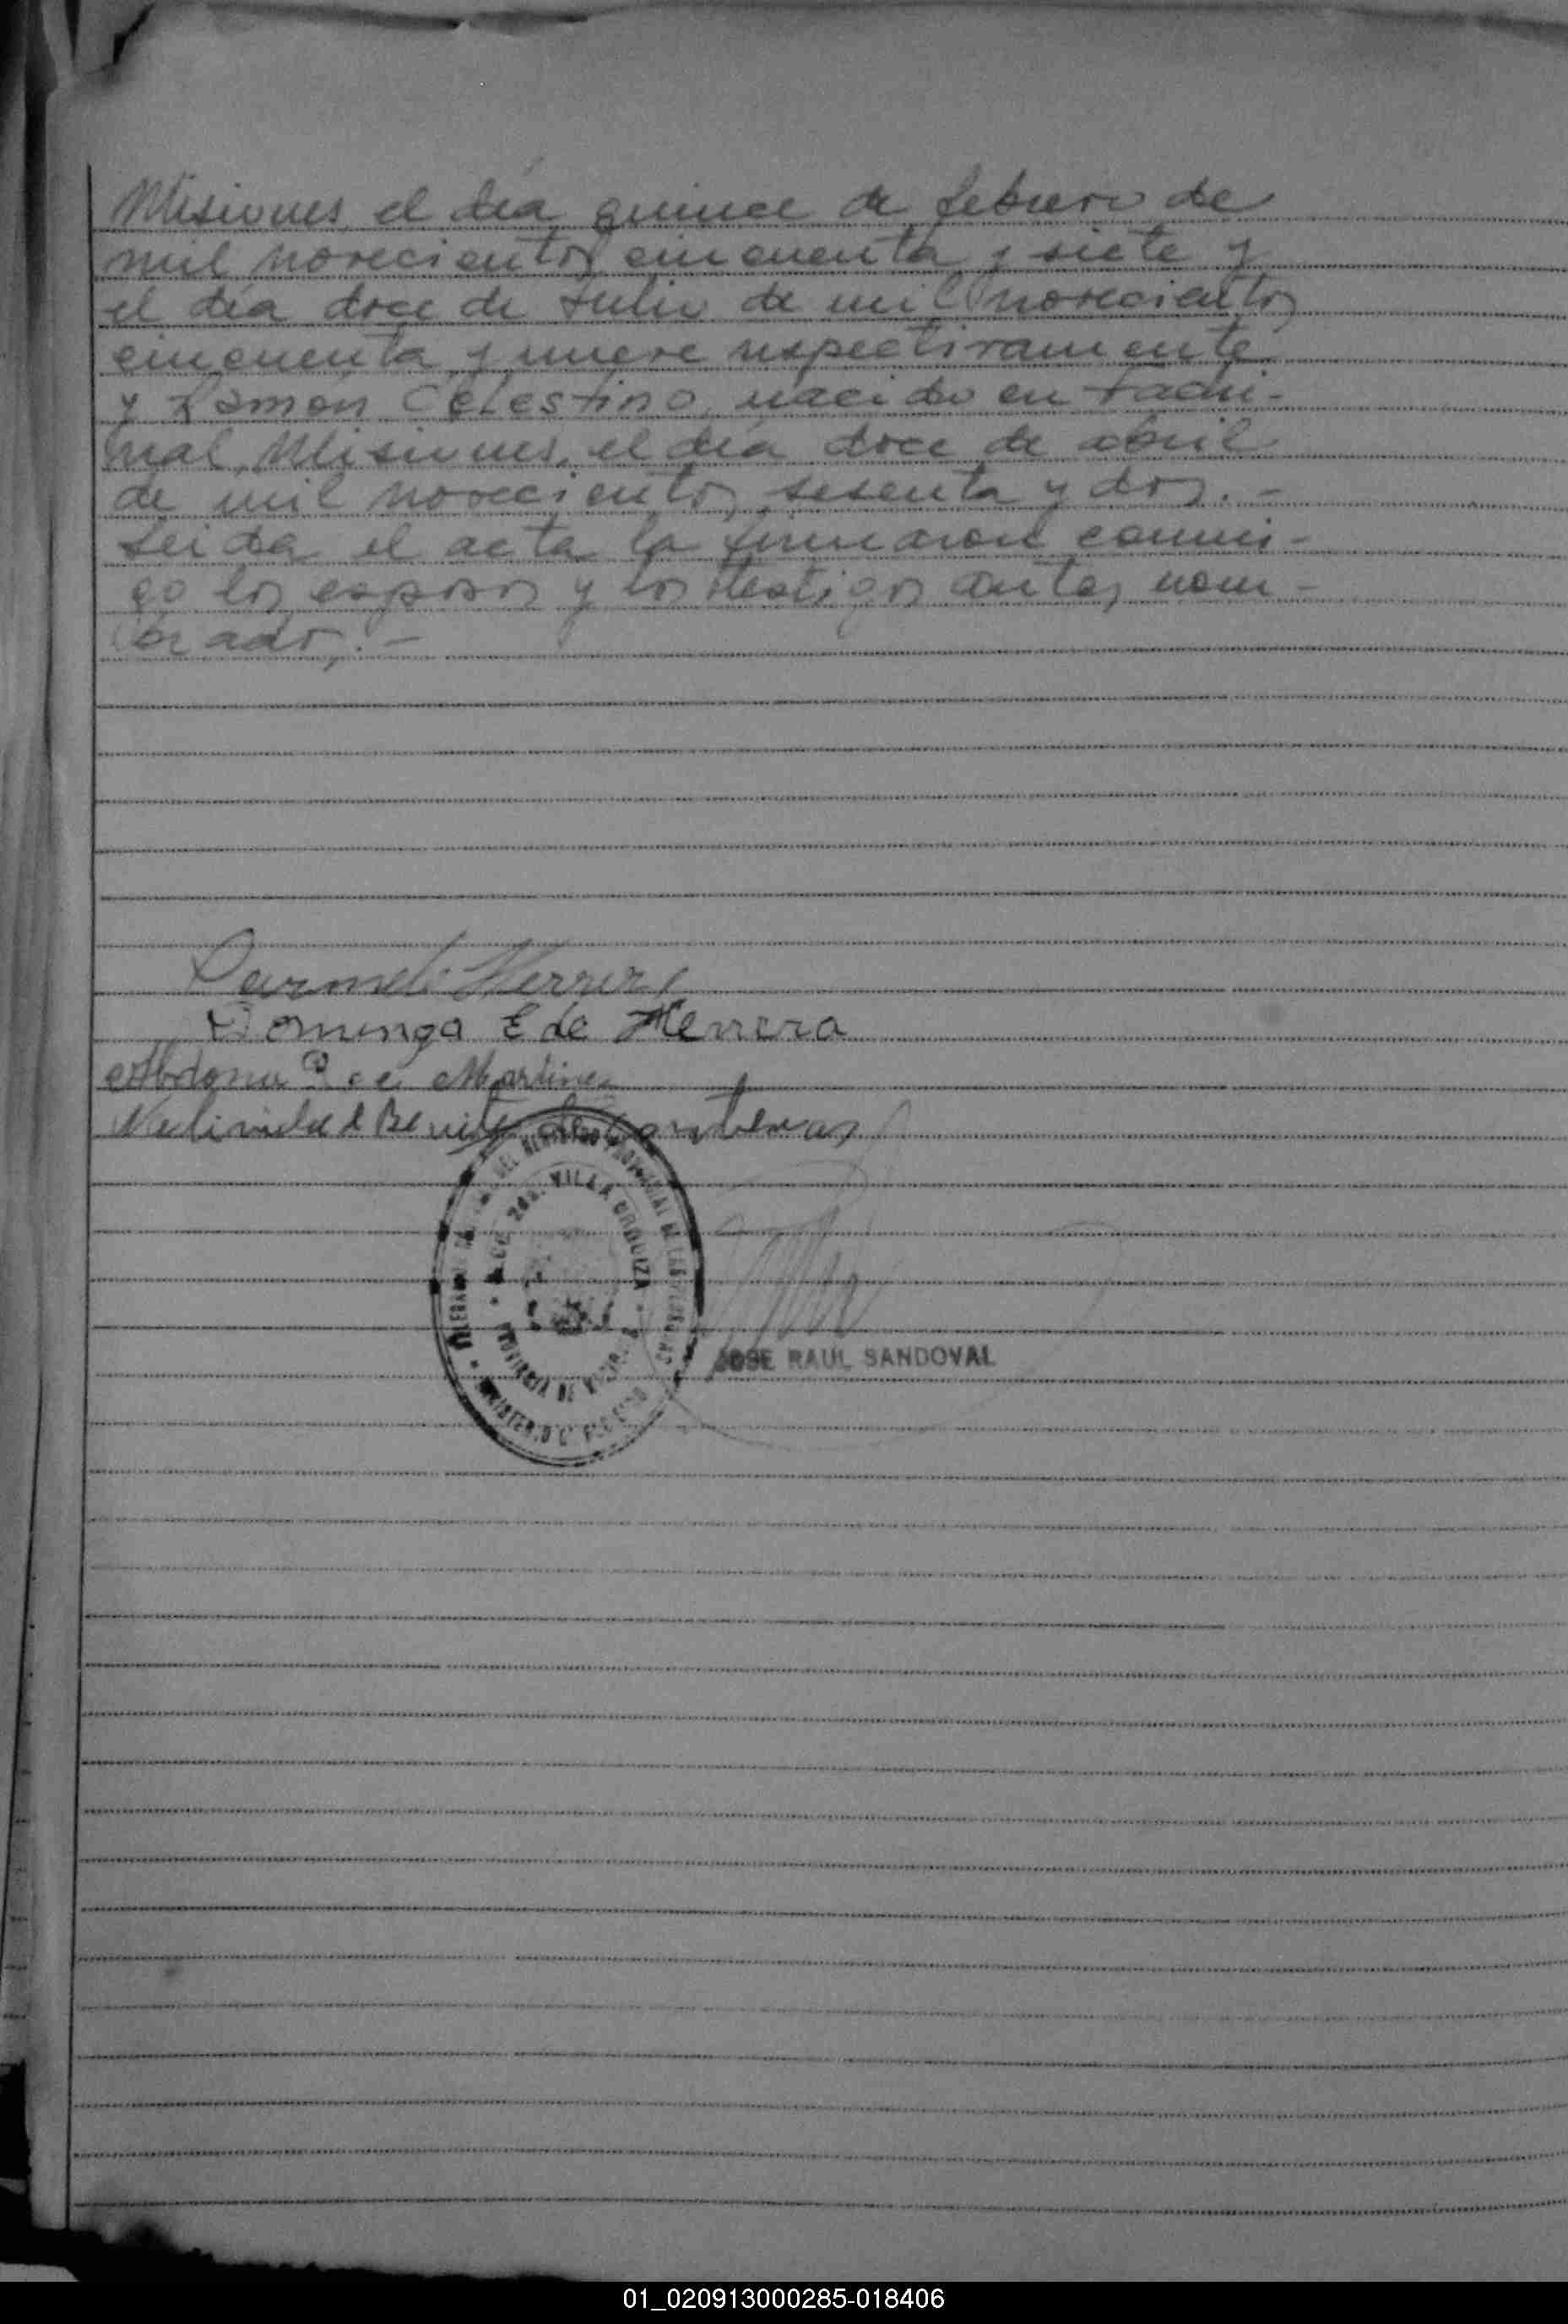 Misiones, el día quince de febrero de
mil novecientos cincuenta y siete y
el día doce de Julio de mil novecientos
cincuenta y nueve respectivamente
y Ramón Celestino, nacido en Fachi-
nal, Misiones, el día doce de abril
de mil novecientos sesenta y dos. -
Leida el acta la firmaron conmi-
go los esposos y los testigos antes nom-
brados. -
Herrera
Dominga E de Herrera
Abdona de Martinez
Natividad Benitez de Contreras
DEL REGISTRO PROVINCIAL DE LAS PERSONAS
VILLA URQUIZA
PROVINCIA DE
MINISTERIO DE GOBIERNO
JOSE RAUL SANDOVAL
01_020913000285-018406